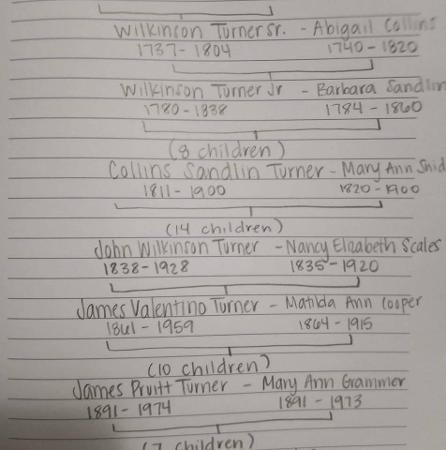 Wilkinson Turner Sr. - Abigail Collins
1737 - 1804 1740 - 1820
Wilkinson Turner Jr - Barbara Sandlin
1780 - 1838 1784 - 1860
(8 children)
Collins Sandlin Turner - Mary Ann Snid
1811 - 1900 1820 - 1900
(14 children)
John Wilkinson Turner - Nancy Elizabeth Scales
1838 - 1928 1835 - 1920
James Valentino Turner - Matilda Ann Cooper
1861 - 1959 1864 - 1915
(10 children)
James Pruitt Turner - Mary Ann Grammer
1891 - 1974 1891 - 1973
(7 children)